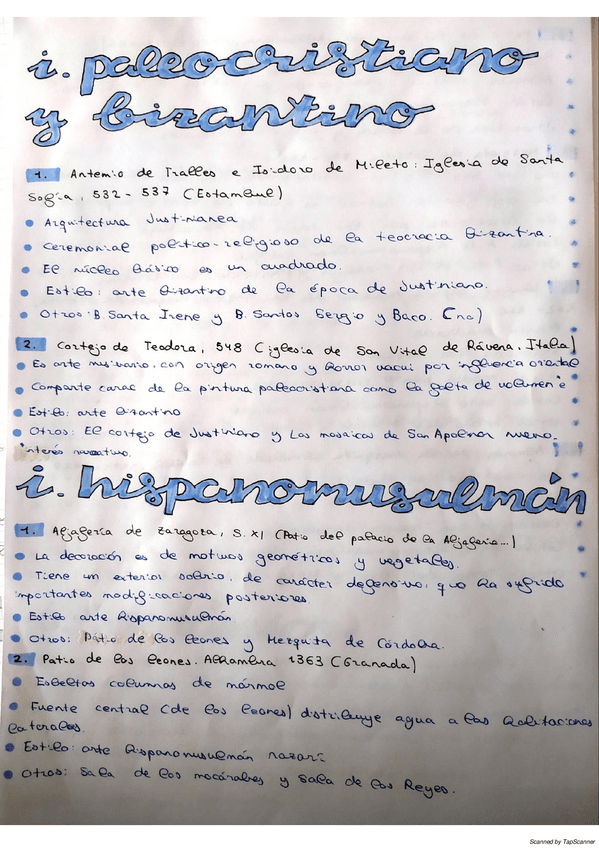 i. paleocristiano
y bizantino
1. Antemio de Tralles e Isidoro de Mileto: Iglesia de Santa
Sofía, 532 - 537 (Estambul)
Arquitectura Justinianea
Ceremonial político-religioso de la teocracia bizantina.
El núcleo básico es un cuadrado.
Estilo: arte bizantino de la época de Justiniano.
Otros: B. Santa Irene y B. Santos Sergio y Baco.
2. Cortejo de Teodora, 548 (iglesia de San Vital de Rávena, Italia)
Es arte musivario, con origen romano y horror vacui por influencia oriental
Comparte carac de la pintura paleocristiana como la falta de volumen e
Estilo: arte bizantino
Otros: El cortejo de Justiniano y Los mosaicos de San Apolinar nuevo.
interés narrativo.
i. hispanomusulmán
1. Aljafería de Zaragoza, S. XI (Patio del palacio de la Aljafería...)
La decoración es de motivos geométricos y vegetales.
Tiene un exterior sobrio, de carácter defensivo, que ha sufrido
importantes modificaciones posteriores.
Estilo arte hispanomusulmán
Otros: Patio de los leones y Mezquita de Córdoba.
2. Patio de los leones. Alhambra 1363 (Granada)
Esbeltas columnas de mármol
Fuente central (de los leones) distribuye agua a las habitaciones
laterales.
Estilo: arte hispanomusulmán nazarí
Otros: Sala de los mocárabes y Sala de los Reyes.
Scanned by TapScanner